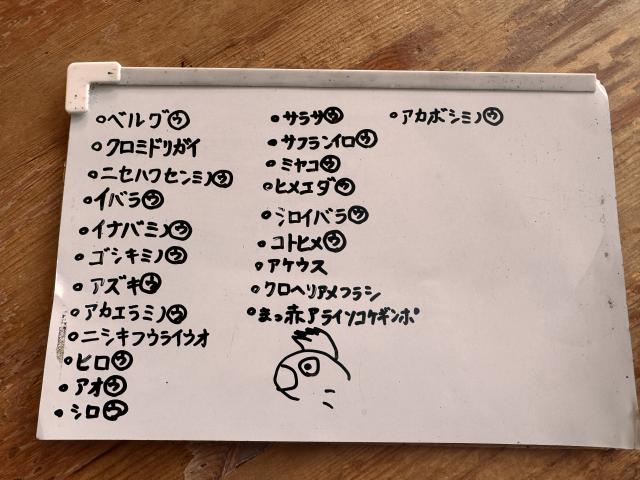 ○ベルグ㋒
○クロミドリガイ
○ニセハワセンミノ㋒
○イバラ㋒
○イナバミノ㋒
○ゴシキミノ㋒
○アズキ㋒
○アカエラミノ㋒
○ニシキフウライウオ
○ヒロ㋒
○アオ㋒
○シロ㋒
○サラサ㋒
○サフランイロ㋒
○ミヤコ㋒
○ヒメエダ㋒
○シロイバラ㋒
○コトヒメ㋒
○アケウス
○クロヘリアメフラシ
○まっ赤アライソコケギンポ
○アカボシミノ㋒